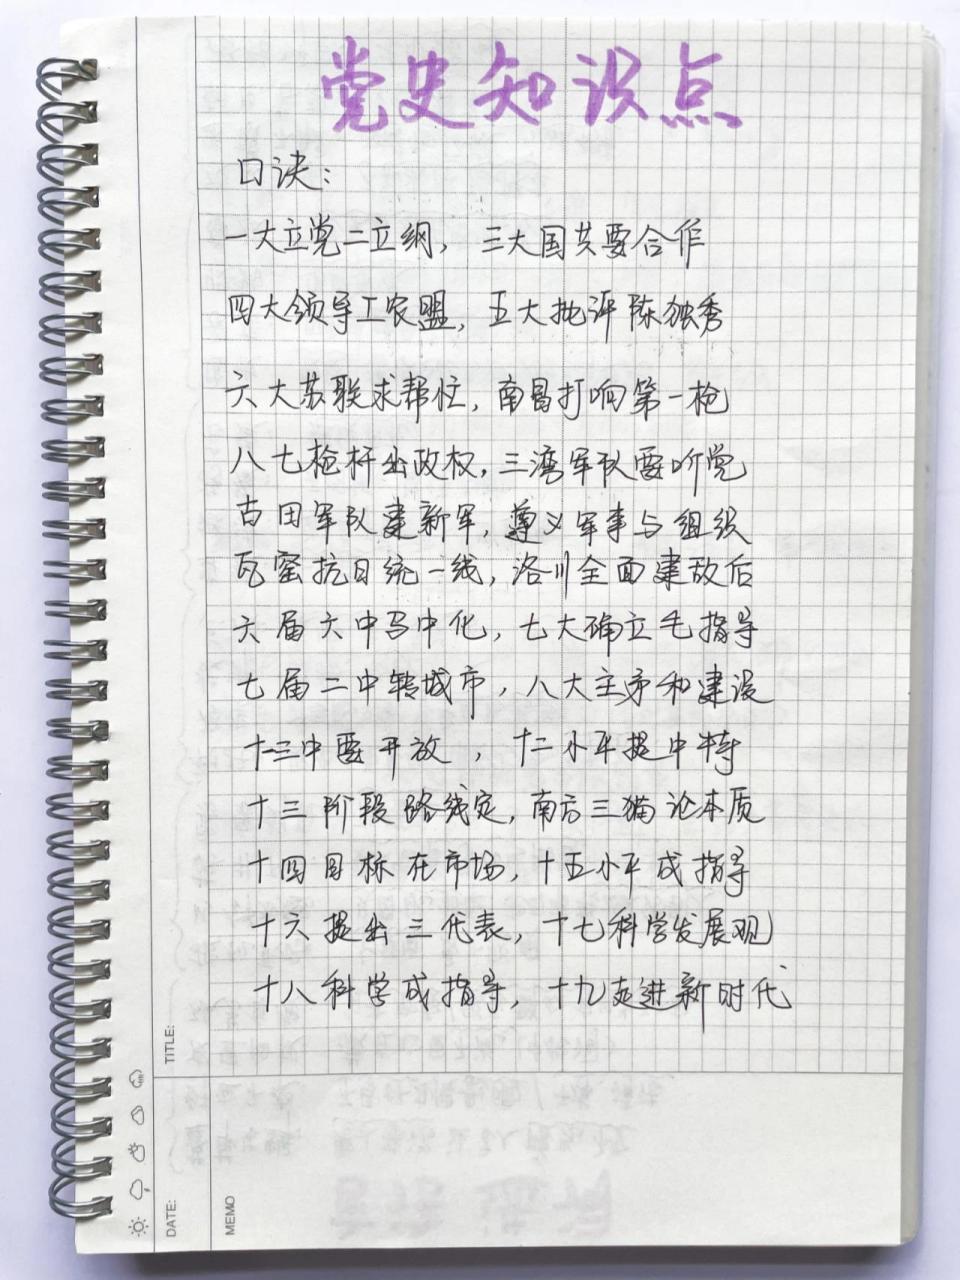 党史知识点
口诀:
一大立党二立纲, 三大国共要合作
四大领导工农盟, 五大批评陈独秀
六大苏联求帮忙, 南昌打响第一枪
八七枪杆出政权, 三湾军队要听党
古田军队建新军, 遵义军事与组织
瓦窑抗日统一线, 洛川全面建敌后
六届六中马中化, 七大确立毛指导
七届二中转城市, 八大主矛和建设
十一三中要开放, 十二小平提中特
十三阶段路线定, 南方三猫论本质
十四目标在市场, 十五小平成指导
十六提出三代表, 十七科学发展观
十八科学成指导, 十九走进新时代
TITLE:
DATE:
MEMO